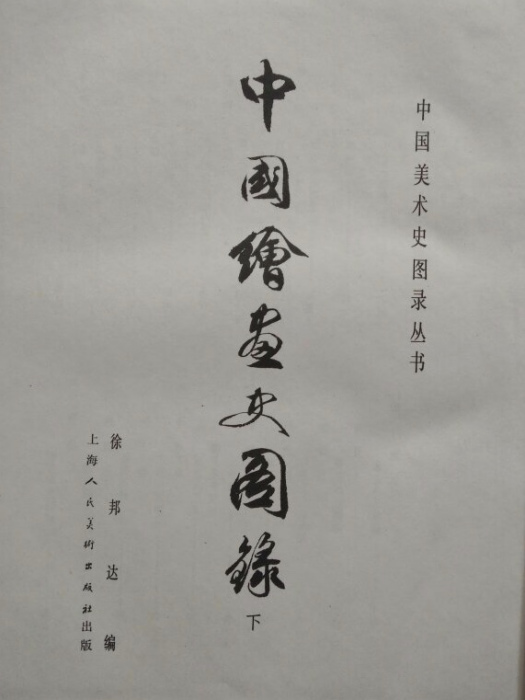 中国美术史图录丛书
中國繪畫史圖錄
下
徐邦达 编
上海人民美術出版社出版